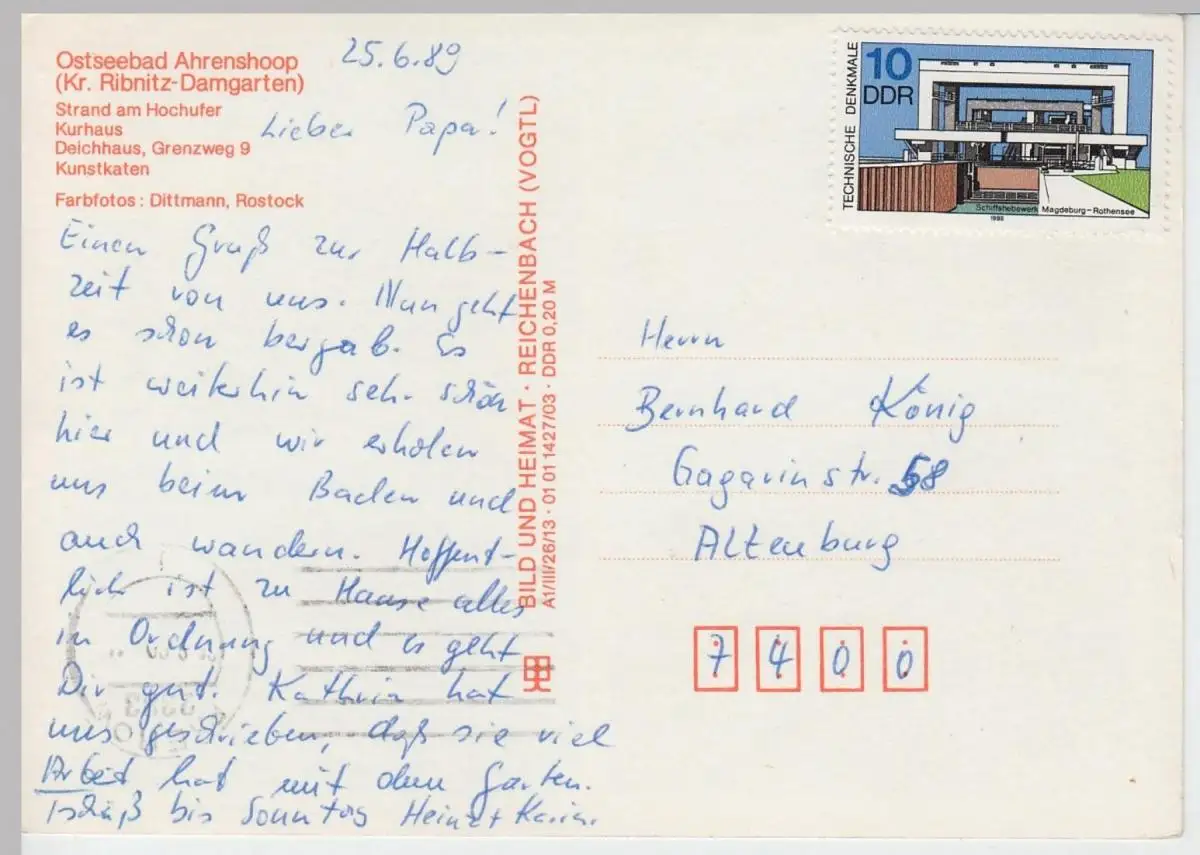 Ostseebad Ahrenshoop
(Kr. Ribnitz-Damgarten)
Strand am Hochufer
Kurhaus
Deichhaus, Grenzweg 9
Kunstkaten
Farbfotos: Dittmann, Rostock
25.6.89
Lieber Papa!
Einen Gruß zur Halb-
zeit von uns. Nun geht
es schon bergab. Es
ist weiterhin sehr schön
hier und wir erholen
uns beim Baden und
auch wandern. Hoffent-
lich ist zu Hause alles
in Ordnung und es geht
Dir gut. Kathrin hat
uns geschrieben, daß sie viel
Arbeit hat mit dem Garten.
Tschüß bis Sonntag Heinz + Karin.
BILD UND HEIMAT · REICHENBACH (VOGTL)
A1/III/26/13 · 01 01 1427/03 · DDR 0,20 M
TECHNISCHE DENKMALE
10
DDR
Schiffshebewerk Magdeburg-Rothensee
1988
Herrn
Bernhard König
Gagarinstr. 58
Altenburg
7 4 0 0